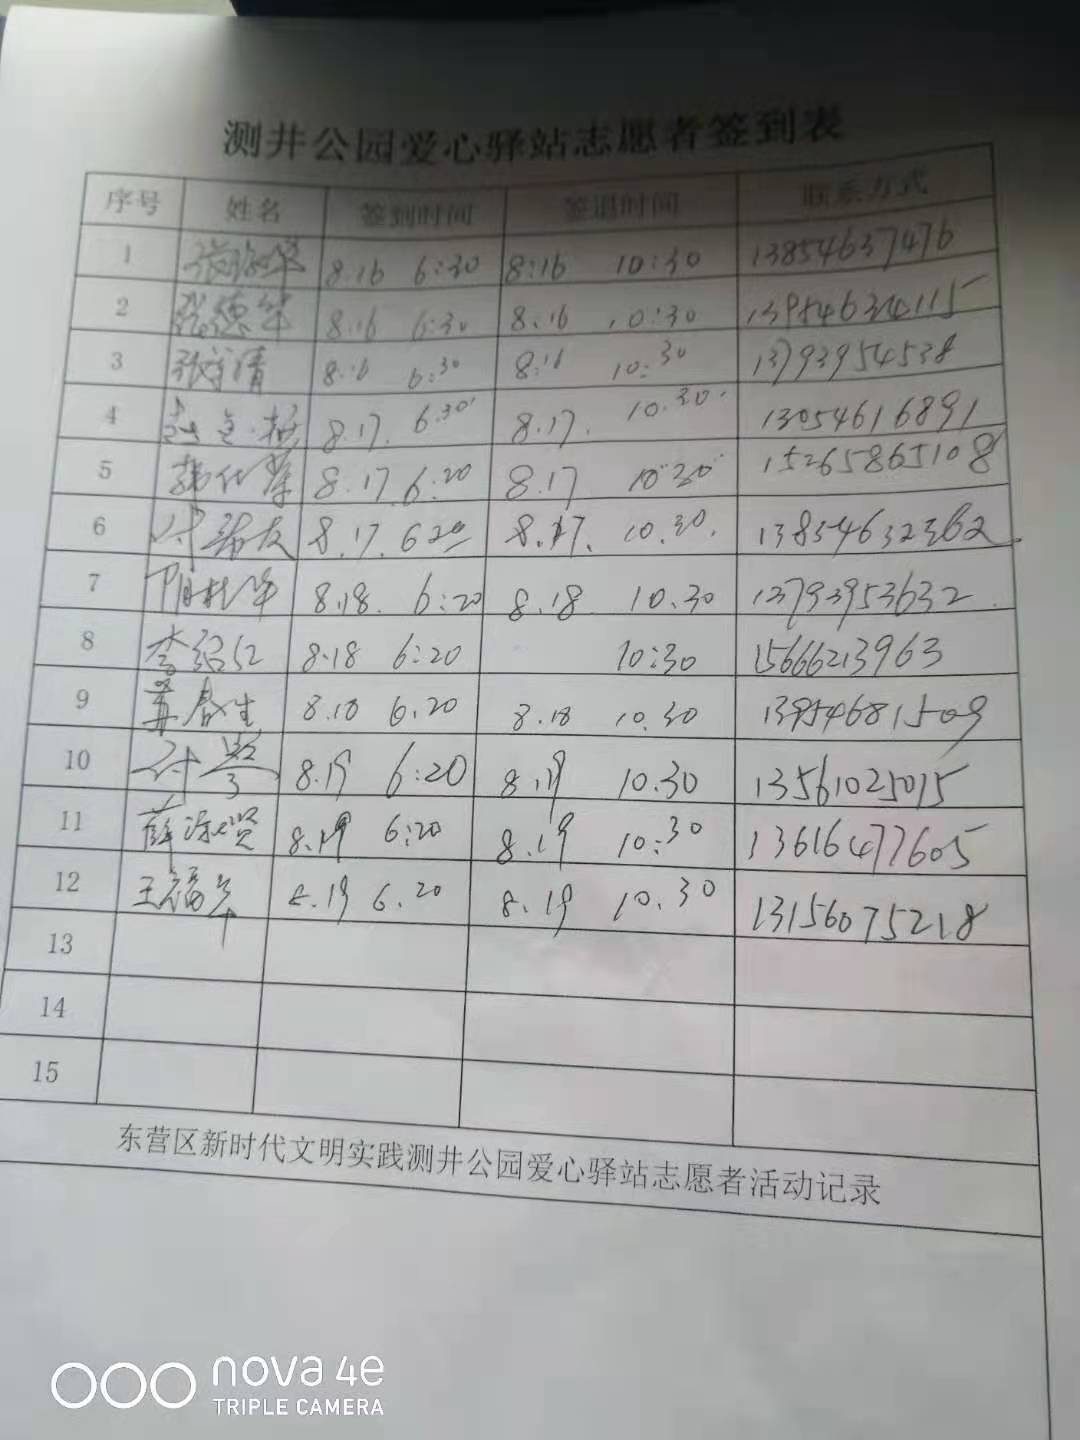 测井公园爱心驿站志愿者签到表
序号 姓名 签到时间 签退时间 联系方式
1 8.16 6:30 8:16 10:30 13854637476
2 张德华 8.16 6:30 8.16 10:30
3 8.16 6:30 8:16 10:30 13793954538
4 8.17. 6.30' 8.17. 10.30. 13054616891
5 8.17 6:20 8.17 10:30 15265865108
6 8.17. 6 20 8.17. 10.30. 13854632362
7 8.18. 6:20 8.18 10.30 13793953632.
8 李绍江 8.18 6:20 10:30 15666213963
9 8.18 6.20 8.18 10.30 13954681509
10 8.19 6:20 8.19 10.30 13561025015
11 8.19 6:20 8.19 10:30 13616477605
12 王福军 8.19 6.20 8.19 10.30 13156075218
13
14
15
东营区新时代文明实践测井公园爱心驿站志愿者活动记录
nova 4e
TRIPLE CAMERA